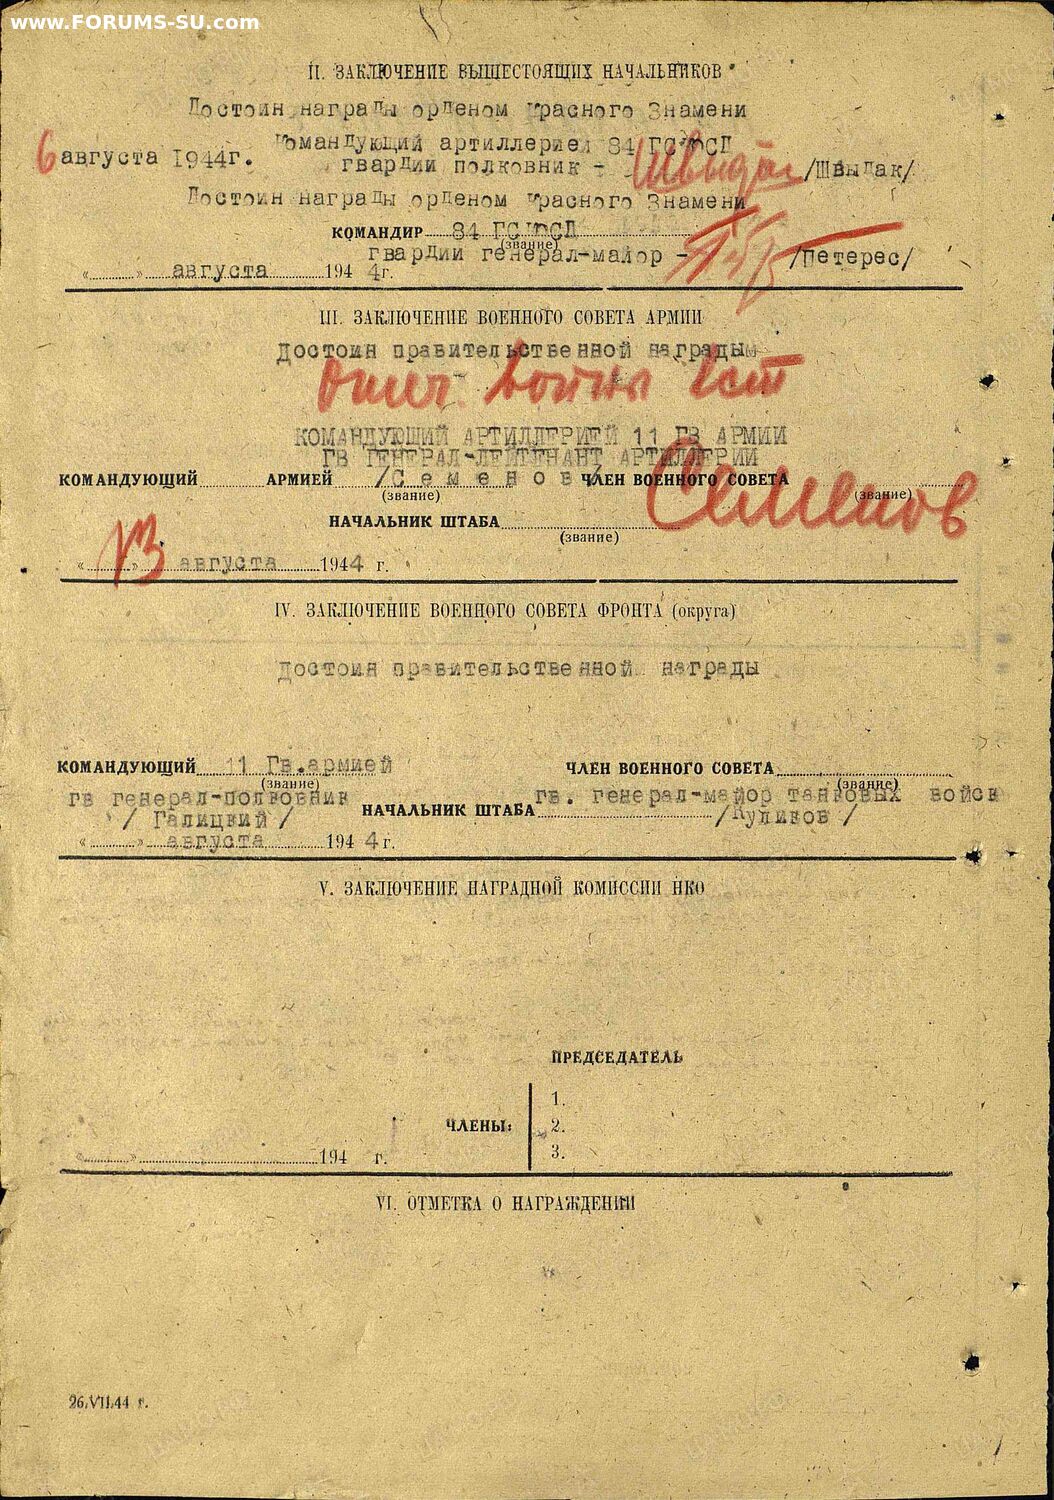 www.FORUMS-SU.com
II. ЗАКЛЮЧЕНИЕ ВЫШЕСТОЯЩИХ НАЧАЛЬНИКОВ
Достоин награды орденом Красного Знамени
Командующий артиллерией 84 ГСКСД
6 августа 1944г.
гвардии полковник - Швыдак /Швыдак/
Достоин награды орденом Красного Знамени
КОМАНДИР 84 ГСКСД
(звание)
гвардии генерал-майор - /Петерс/
" " августа 1944г.
III. ЗАКЛЮЧЕНИЕ ВОЕННОГО СОВЕТА АРМИИ
Достоин правительственной награды
отеч. войны 1 ст
КОМАНДУЮЩИЙ АРТИЛЛЕРИЕЙ 11 ГВ АРМИИ
ГВ ГЕНЕРАЛ-ЛЕЙТЕНАНТ АРТИЛЛЕРИИ
КОМАНДУЮЩИЙ АРМИЕЙ /Семенов/ ЧЛЕН ВОЕННОГО СОВЕТА Семенов
(звание) (звание)
НАЧАЛЬНИК ШТАБА
(звание)
"13" августа 1944 г.
IV. ЗАКЛЮЧЕНИЕ ВОЕННОГО СОВЕТА ФРОНТА (округа)
Достоин правительственной награды
КОМАНДУЮЩИЙ 11 Гв.армией ЧЛЕН ВОЕННОГО СОВЕТА
(звание) (звание)
гв генерал-полковник гв. генерал-майор танковых войск
НАЧАЛЬНИК ШТАБА
/ Галицкий / /Куликов /
" " августа 1944г.
V. ЗАКЛЮЧЕНИЕ НАГРАДНОЙ КОМИССИИ НКО
ПРЕДСЕДАТЕЛЬ
1.
ЧЛЕНЫ: 2.
3.
" " 194 г.
VI. ОТМЕТКА О НАГРАЖДЕНИИ
26.VII.44 г.